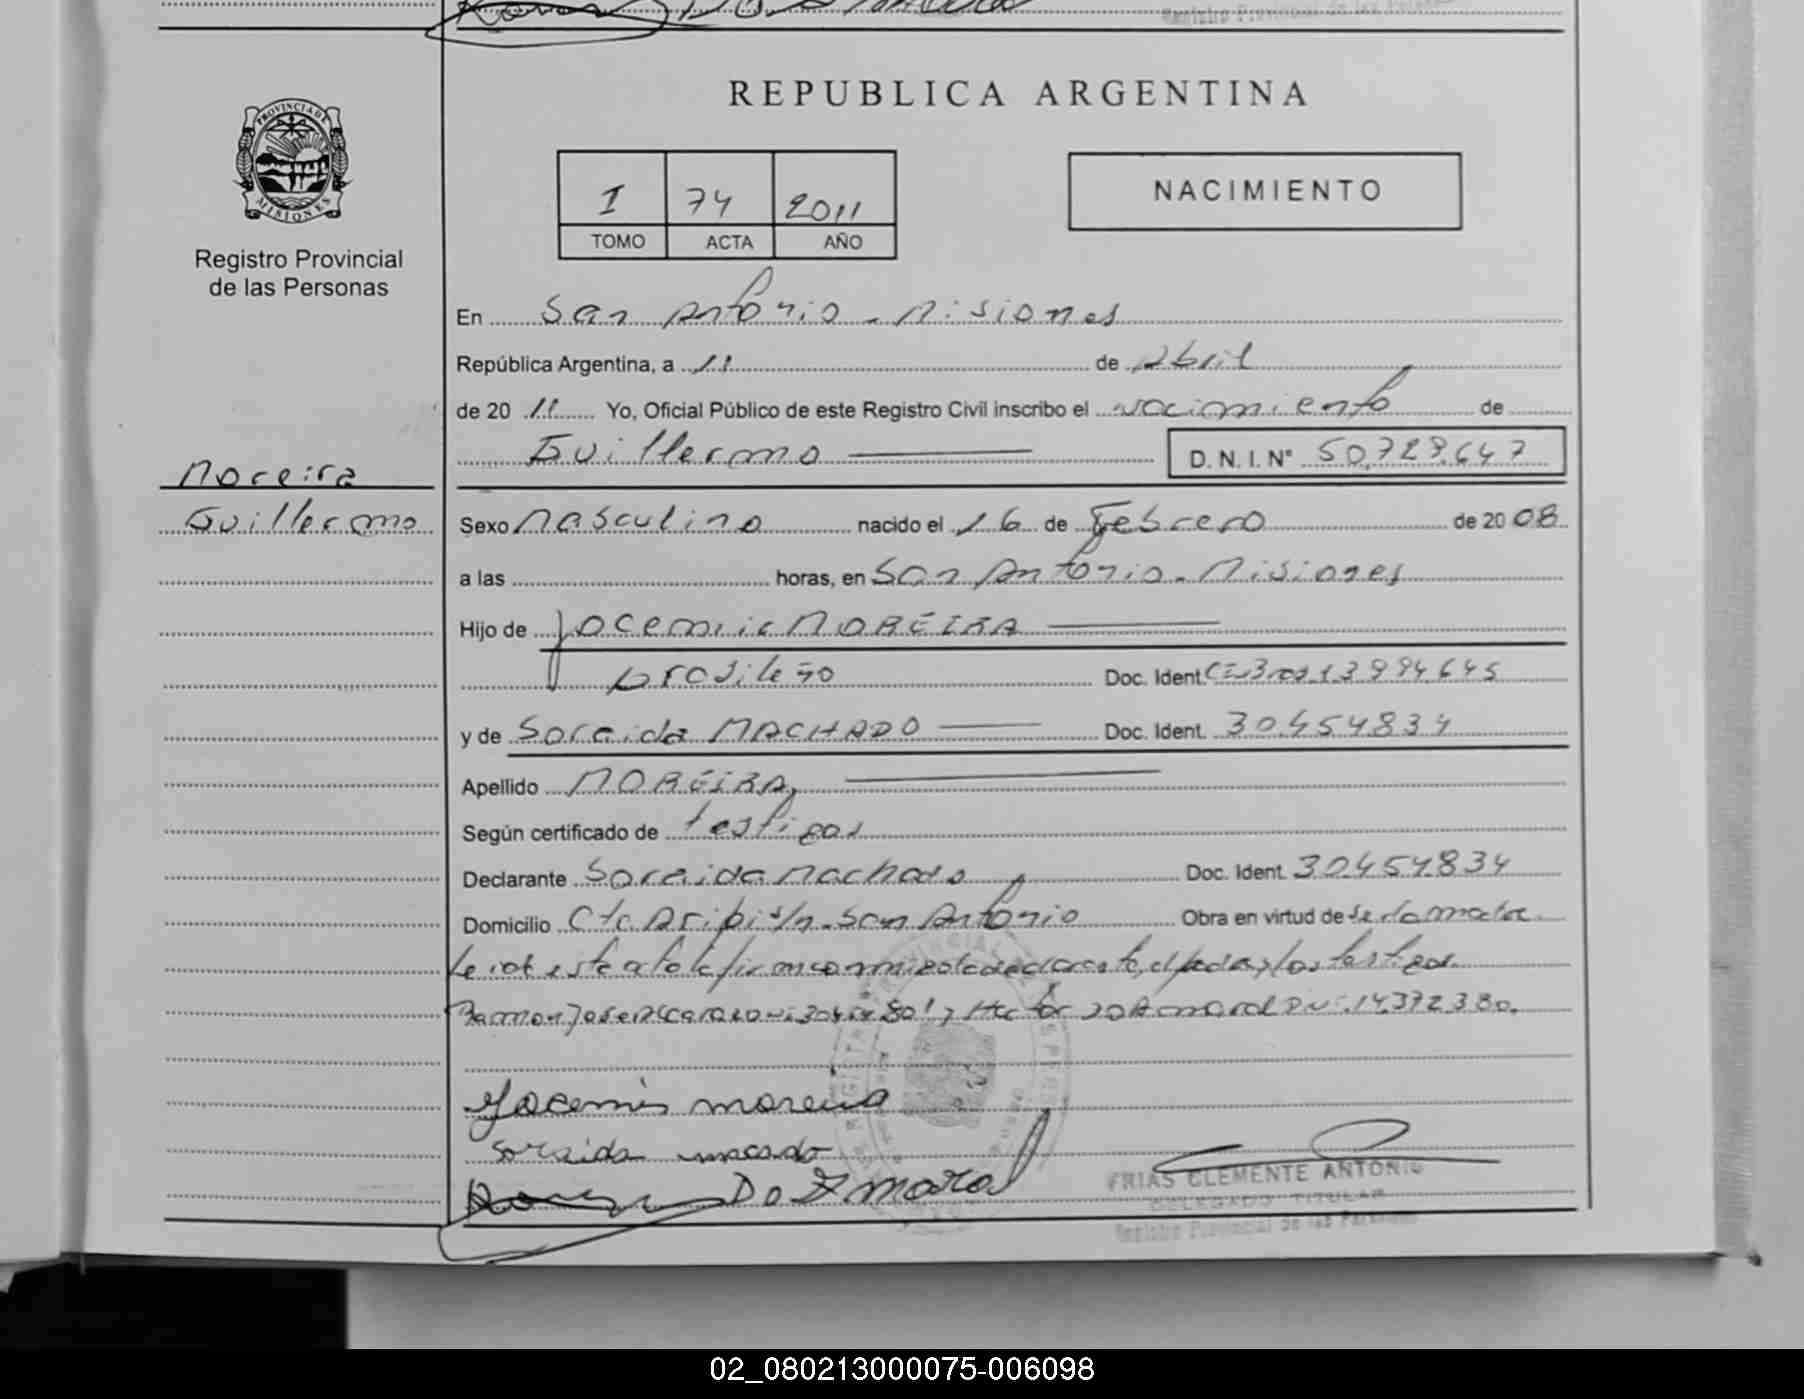 REPUBLICA ARGENTINA
PROVINCIA DE
MISIONES
Registro Provincial
de las Personas
I 74 2011
TOMO ACTA AÑO
NACIMIENTO
En San Antonio - Misiones
República Argentina, a 11 de Abril
de 20 11 Yo, Oficial Público de este Registro Civil inscribo el nacimiento de
Guillermo D. N. I. N° 50.729.647
Moreira
Guillermo
Sexo Masculino nacido el 16 de Febrero de 20 08
a las horas, en San Antonio - Misiones
Hijo de Jocemir MOREIRA
brasileño Doc. Ident. 13994645
y de Soraida MACHADO Doc. Ident. 30.454834
Apellido MOREIRA
Según certificado de testigos
Declarante Soraida Machado Doc. Ident. 30.454.834
Domicilio Cta Aripi s/n - San Antonio Obra en virtud de ser la madre
Leida este acta la firman conmigo la declarante, el padre y los testigos
Ramon Jose y Hector Do Amaral DNI: 14.372.380.
Jocemir moreira
Soraida macado
Do Amaral
FRIAS CLEMENTE ANTONIO
DELEGADO TITULAR
Registro Provincial de las Personas
02_080213000075-006098